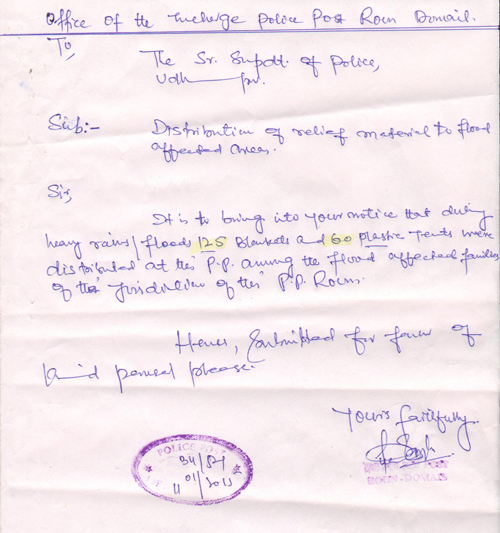 Office of the Incharge Police Post Roun Domail.
To,
The Sr. Supdt. of Police,
Udh——pur.
Sub:- Distribution of relief material to flood
affected areas.
Sir,
It is to bring into your notice that during
heavy rains/floods 125 Blankets and 60 plastic Tents were
distributed at this P.P. among the flood affected families
of the Jurisdiction of this P.P. Roun.
Hence, Submitted for favour of
kind perusal please.
Yours faithfully
POLICE POST
ROUN-DOMAIL